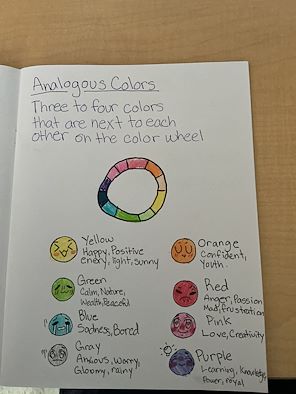 Analogous Colors
Three to four colors
that are next to each
other on the color wheel
Yellow
Happy, Positive
energy, light, sunny
Green
Calm, Nature,
Wealth, Peaceful
Blue
Sadness, Bored
Gray
Anxious, Worry,
Gloomy, rainy
Orange
Confident,
Youth
Red
Anger, Passion
Mad, frustration
Pink
Love, Creativity
Purple
Learning, Knowledge
Power, royal